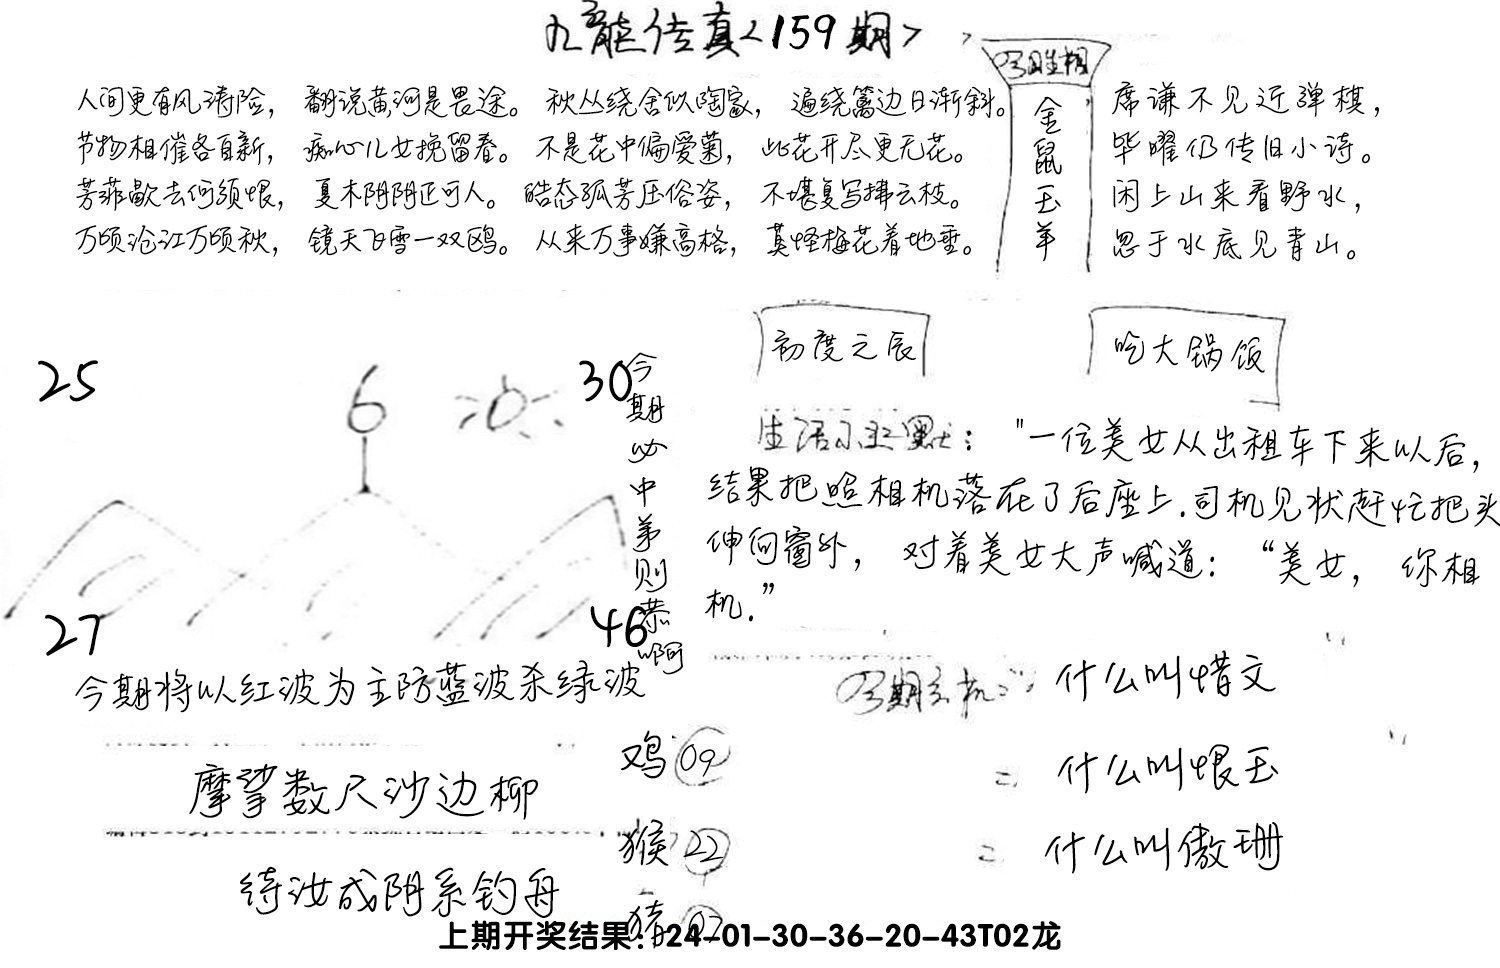 九龙传真<159期>
人间更有风涛险，翻说黄河是畏途。秋丛绕舍似陶家，遍绕篱边日渐斜。
节物相催各自新，痴心儿女挽留春。不是花中偏爱菊，此花开尽更无花。
芳菲歇去何须恨，夏木阴阴正可人。皓态孤芳压俗姿，不堪复写拂云枝。
万顷沧江万顷秋，镜天飞雪一双鸥。从来万事嫌高格，莫怪梅花着地垂。
金鼠玉羊
席谦不见近弹棋，
毕曜仍传旧小诗。
闲上山来看野水，
忽于水底见青山。
初度之辰
吃大锅饭
25
6
30
27
46
今期必中第则恭啊
今期将以红波为主防蓝波杀绿波
生活幽默："一位美女从出租车下来以后，
结果把照相机落在了后座上.司机见状赶忙把头
伸向窗外，对着美女大声喊道：“美女，你相
机.”
摩挲数尺沙边柳
待汝成阴系钓舟
鸡 09
猴 22
猪 02
今期玄机：什么叫惜文
= 什么叫恨玉
= 什么叫傲珊
上期开奖结果：24-01-30-36-20-43T02龙